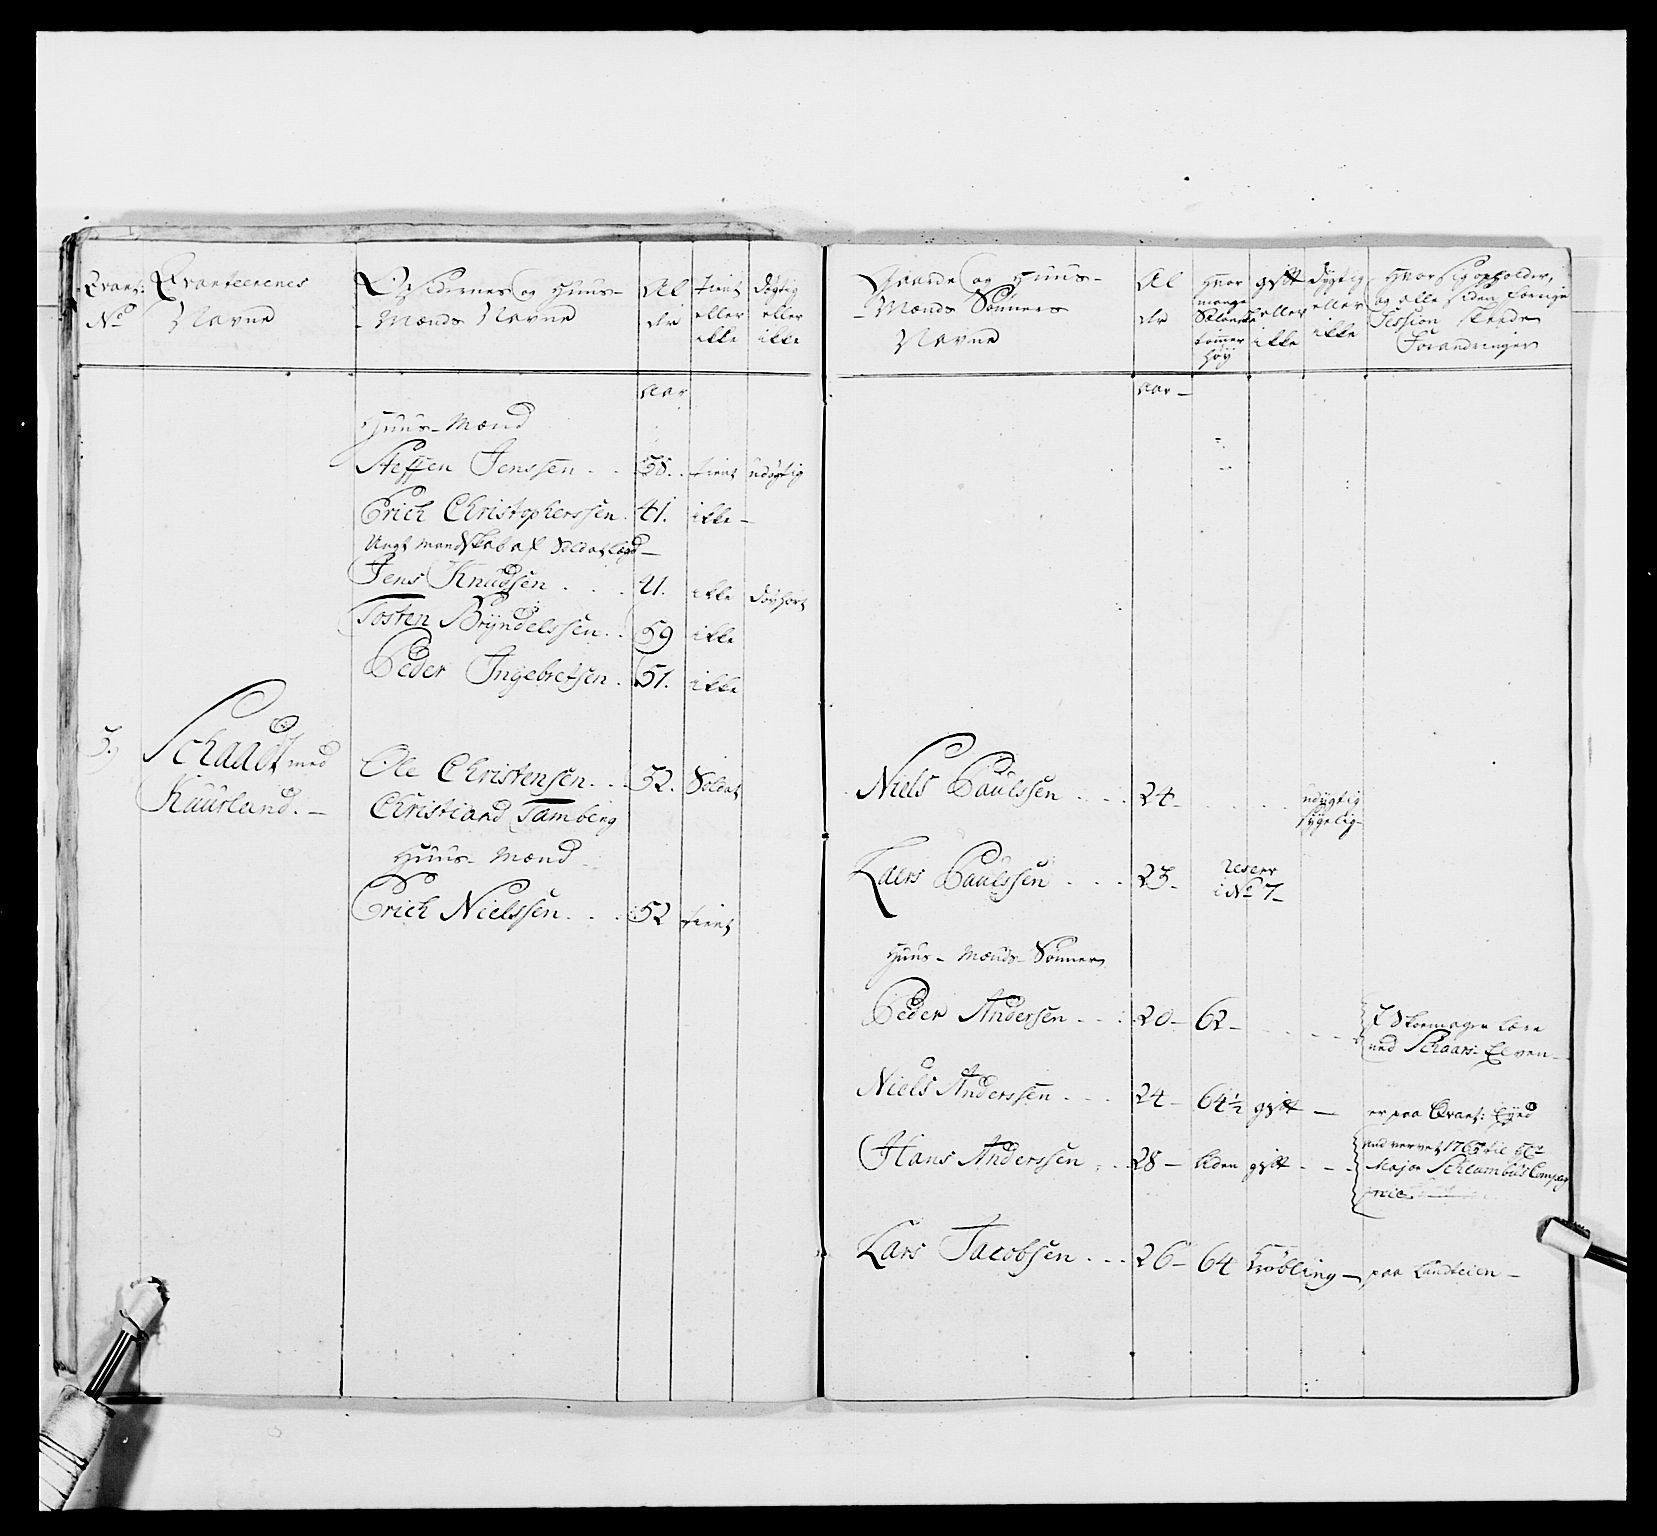 Qvart: No
Qvarteerenes Navne
Opsidernes og Huus-
Mænds Navne
Al
der
tient
eller
ikke
døgtig
eller
ikke
Huus-Mænd
Aar
Steffen Jenssen . . 58. tient udøgtig
Erich Christopherssen. 41. ikke -
Ungt Mandskab af Soldat lægd -
Jens Knudsen . . . 41. ikke døvhørt
Tosten Bryndelssen . . 59 ikke
Peder Ingebretsen . 51. ikke
3. Schaadt med
Kuurland. -
Ole Christensen . . . 32. Soldat
Christiand Tamberg
Huus-Mænd -
Erich Nielssen . . . 52 tient
Gaarde og Huus-
Mænds Sønners
Navne
Al
der
hvor
mange
Sælands
tommer
høy
gift
eller
ikke
døgtig
eller
ikke
Hvor sig opholder,
og alle siden forrige
Session skeede
Forandringer
Aar -
Niels Paulssen . . . 24 - . . . . udøgtig
sygelig -
Laers Paulssen . . . 23 - reserv
i No 7 -
Huus-Mænds-Sønner
Peder Andersen - . . 20 - 62 - . . . I Skoemager Lære
ved Schaars: Elven -
Niels Anderssen . . . 24 - 64½ gift - er paa Qvart: Eyed
Hans Anderssen . . . 28 - liden gift - . . und vervet 1765 til Hr
Major Schlambus Compag
nie
Lars Jacobsen . . . 26 - 64 Krøbling - paa Landteien -